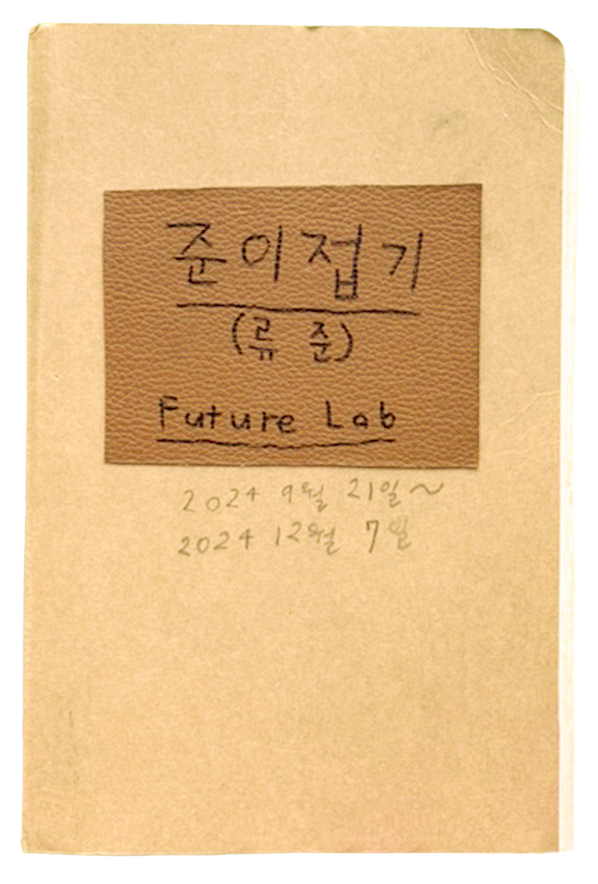 준이접기
(류 준)
Future Lab
2024 9월 21일~
2024 12월 7일